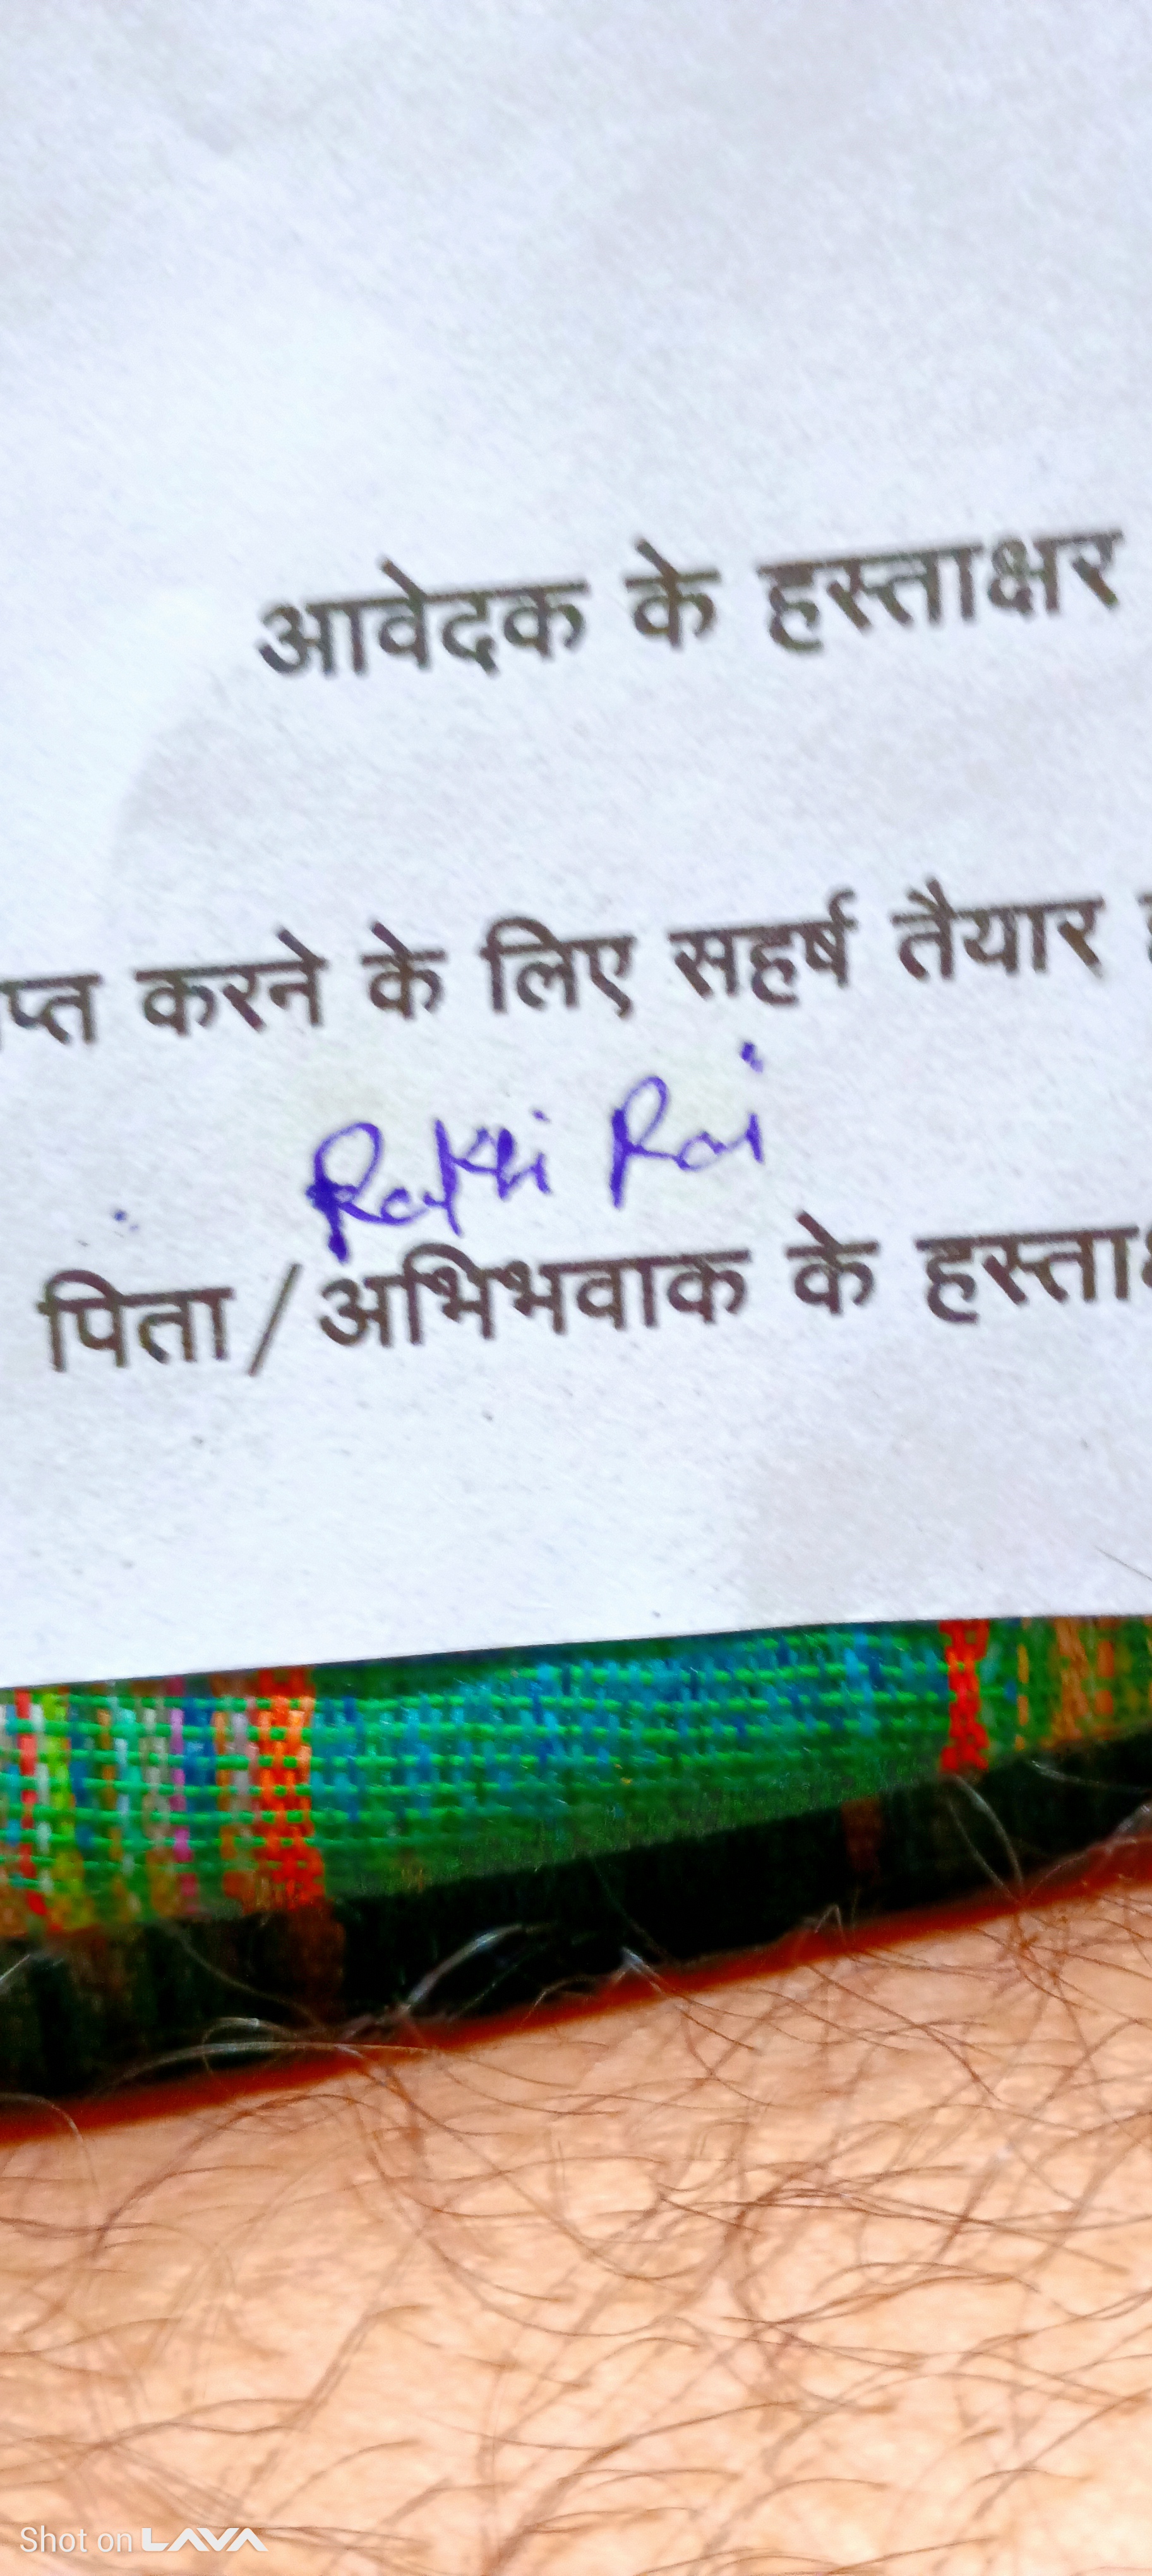 आवेदक के हस्ताक्षर
प्त करने के लिए सहर्ष तैयार
Rakhi Rai
पिता/अभिभवाक के हस्ता
Shot on LAVA